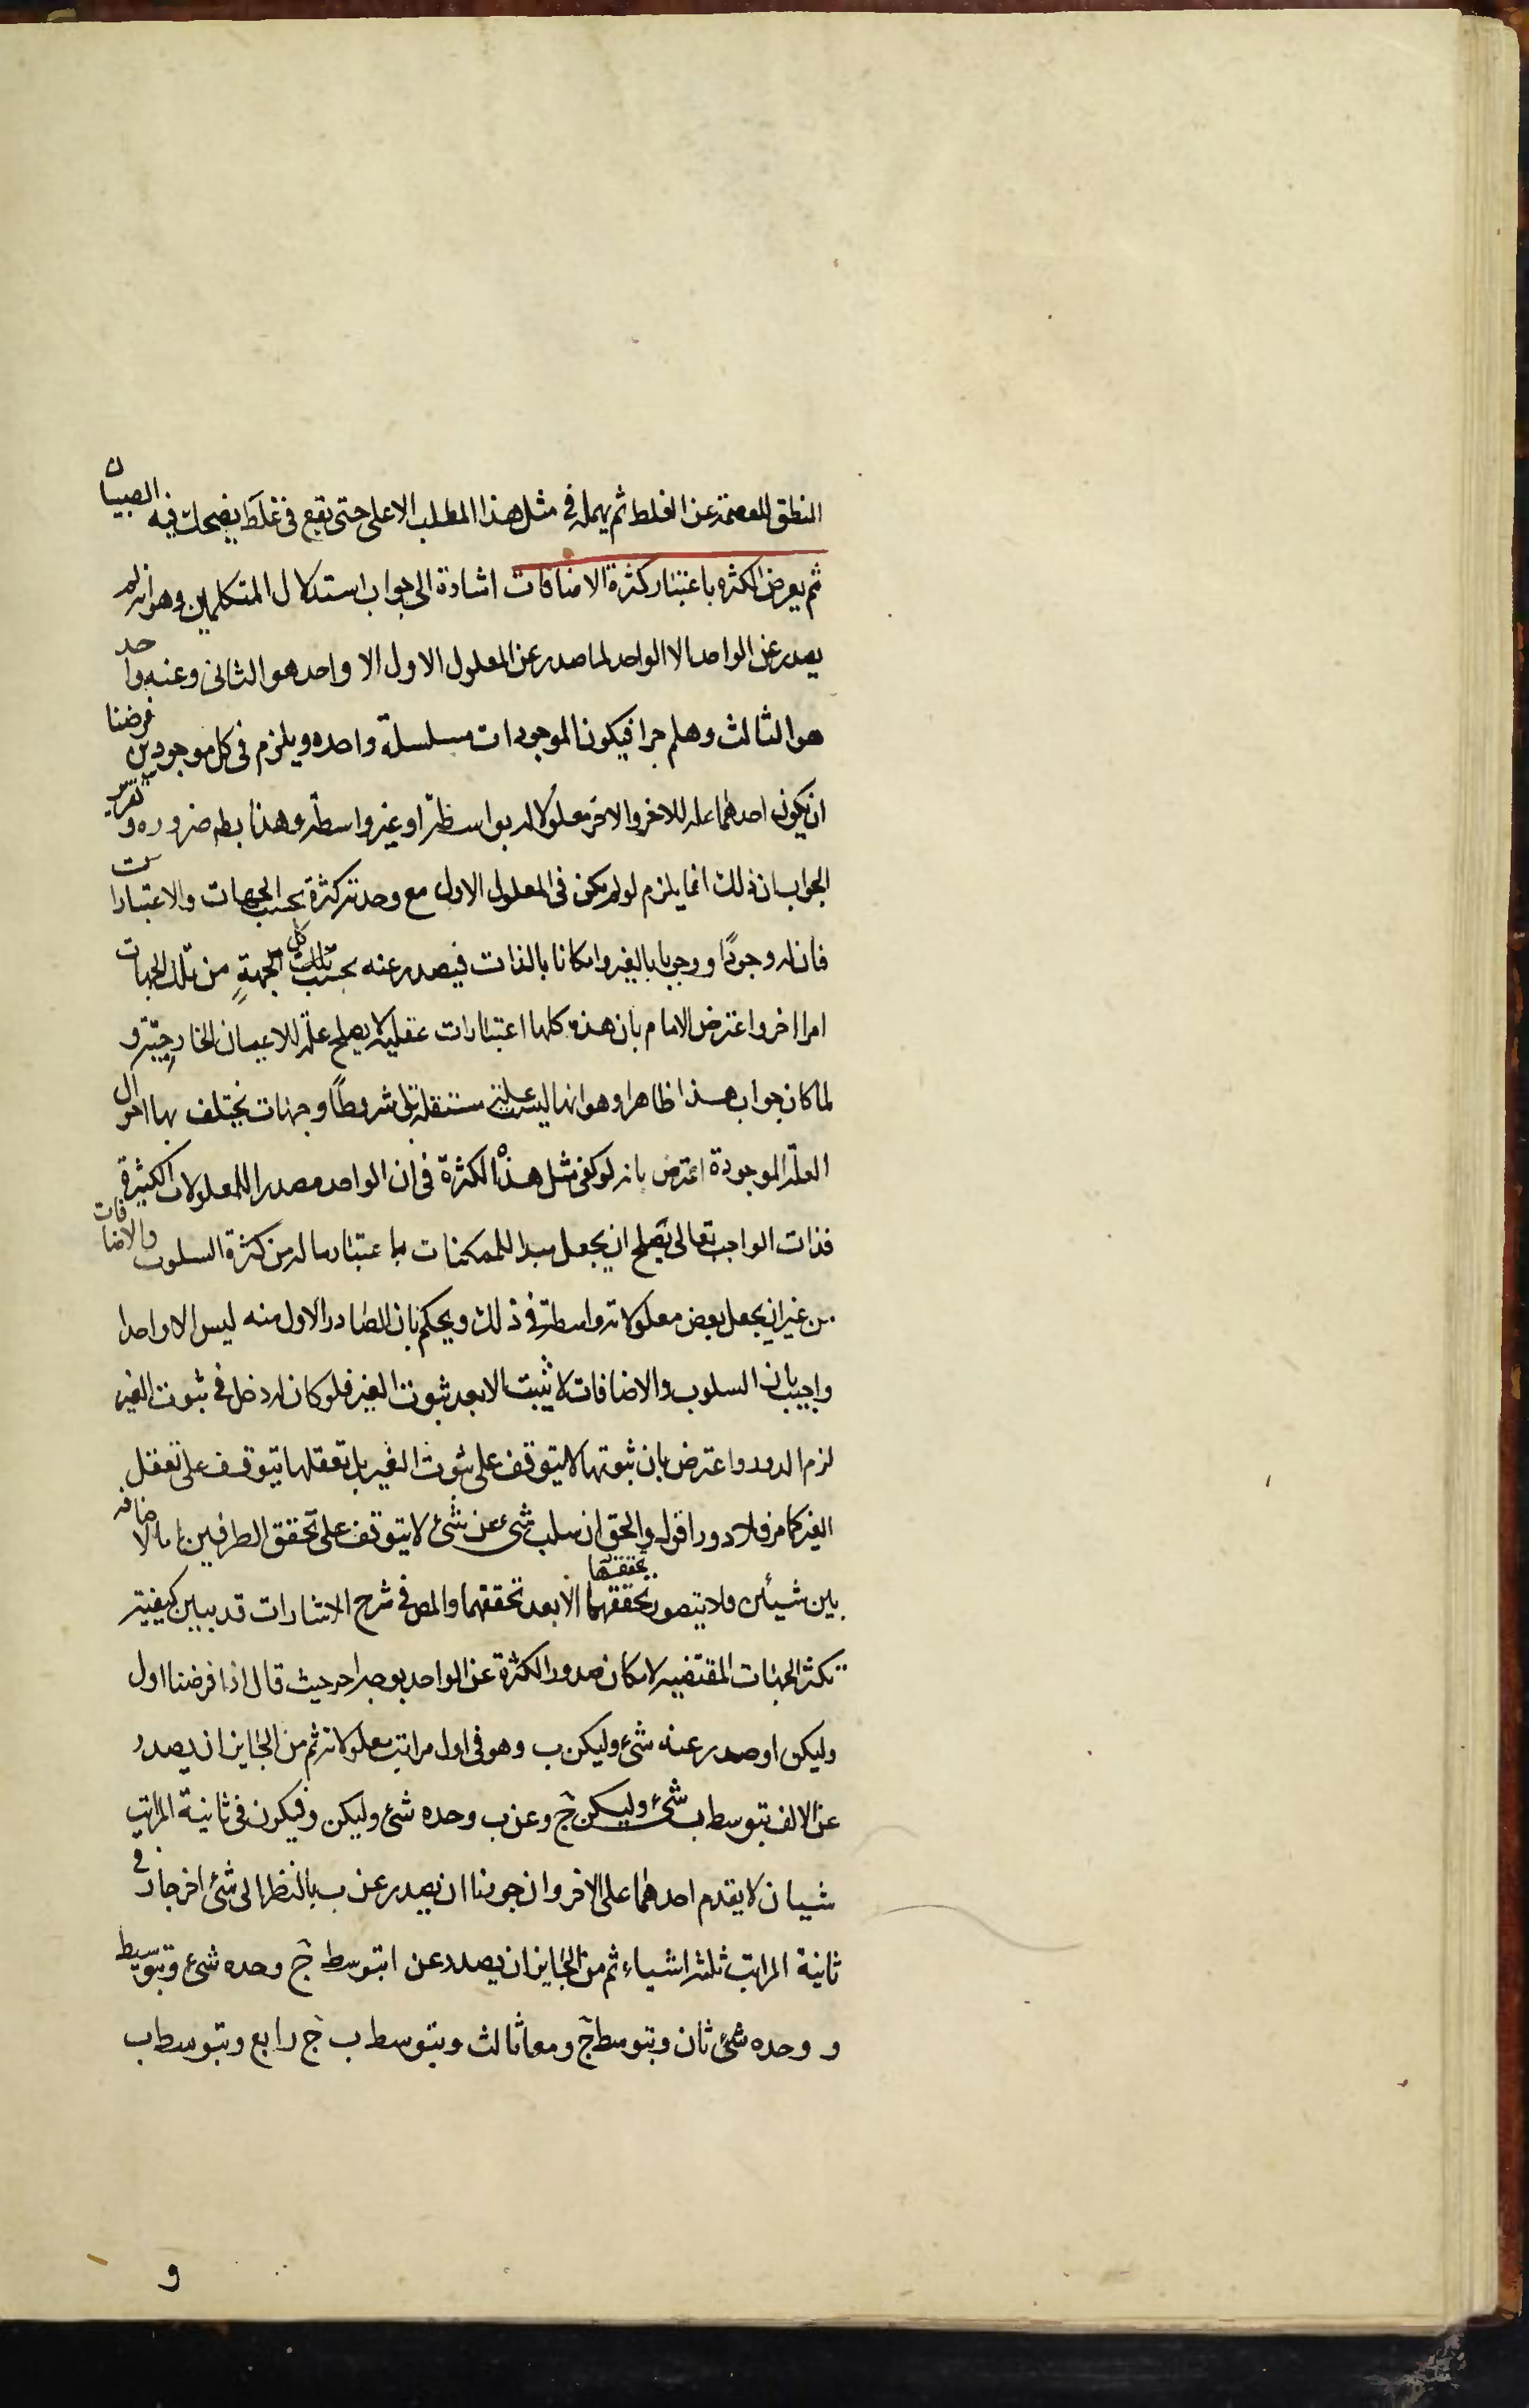 النطق للعصمة عن الغلط ثم يهمله في مثل هذا المطلب الاعلى حتى تقع في غلط يضحك فيه الصبيان
ثم يعرض الكثره باعتبار كثرة الاضافات اشارة الى جواب استدلال المتكلمين وهو انه لو لم
يصدر عن الواحد الا الواحد لما صدر عن المعلول الاول الا واحد هو الثاني وعنه واحد
هو الثالث وهلم جرا فيكون الموجودات سلسلة واحده ويلزم في كل موجودين فرضنا
ان يكون احدهما عله للاخر والاخر معلولا له بواسطة او غير واسطة وهذا بط ضروره و تقرير
الجواب ان ذلك انما يلزم لو لم يكن في المعلول الاول مع وحدته كثرة بحسب الجهات والاعتبارات
فان له وجودًا ووجوبا بالغير وامكانا بالذات فيصدر عنه بحسب كل جهةٍ من تلك الجهات
امرا اخر واعترض الامام بان هذه كلها اعتبارات عقلية لا يصلح علة للاعيان الخارجيّة و
لما كان جواب هذا ظاهرا وهو انها ليست علة مستقلة بل شروطًا وجهات يختلف بها احوال
العلة الموجودة اعترض بانه لو كفى مثل هذه الكثرة في ان الواحد مصدرا للمعلولات الكثيرة
فذات الواجب تعالى يصلح ان يجعل مبدا للممكنات باعتبار ما له من كثرة السلوب والاضافات
من غير ان يجعل بعض معلولاته واسطة في ذلك ويحكم بان الصادر الاول منه ليس الا واحدا
واجيب بان السلوب والاضافات لا يثبت الا بعد ثبوت الغير فلو كان له دخل في ثبوت الغير
لزم الدور واعترض بان ثبوتها لا يتوقف على ثبوت الغير بل تعقلها يتوقف على تعقل
الغير كما مر فلا دور اقول والحق ان سلب شئ عن شئ لا يتوقف على تحقق الطرفين اما الاضافه
بين شيئين فلا يتصور تحققها الا بعد تحققهما والمص في شرح الاشارات قد بين كيفية
تكثر الجهات المقتضيه لامكان صدور الكثرة عن الواحد بوجه اخر حيث قال اذا فرضنا اول
وليكن ا وصدر عنه شئ وليكن ب وهو في اول مراتب معلولاته ثم من الجايز ان يصدر
عن الالف بتوسط ب شئ وليكن ج وعن ب وحده شئ وليكن و فيكون في ثانية المراتب
شيان لا يقدم احدهما على الاخر وان جوزنا ان يصدر عن ب بالنظر الى شئ اخر جاز في
ثانية المراتب ثلثة اشياء ثم من الجايز ان يصدر عن ا بتوسط ج وحده شئ وبتوسط
و وحده شئ ثان وبتوسط ج و معا ثالث وبتوسط ب ج رابع وبتوسط ب
و